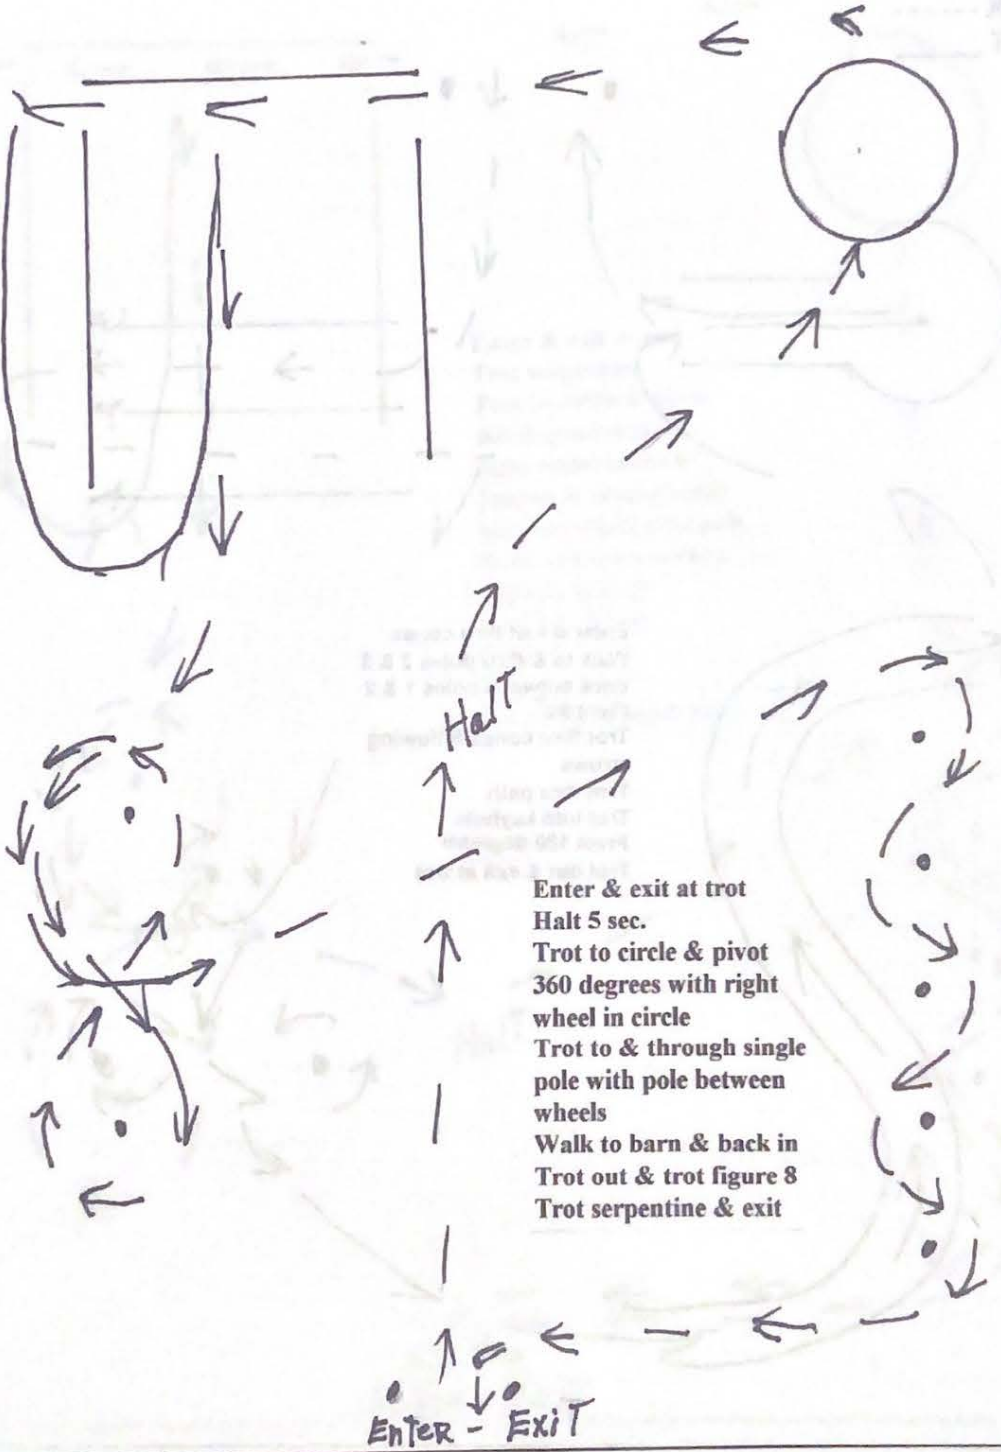 Halt
Enter & exit at trot
Halt 5 sec.
Trot to circle & pivot
360 degrees with right
wheel in circle
Trot to & through single
pole with pole between
wheels
Walk to barn & back in
Trot out & trot figure 8
Trot serpentine & exit
Enter - Exit